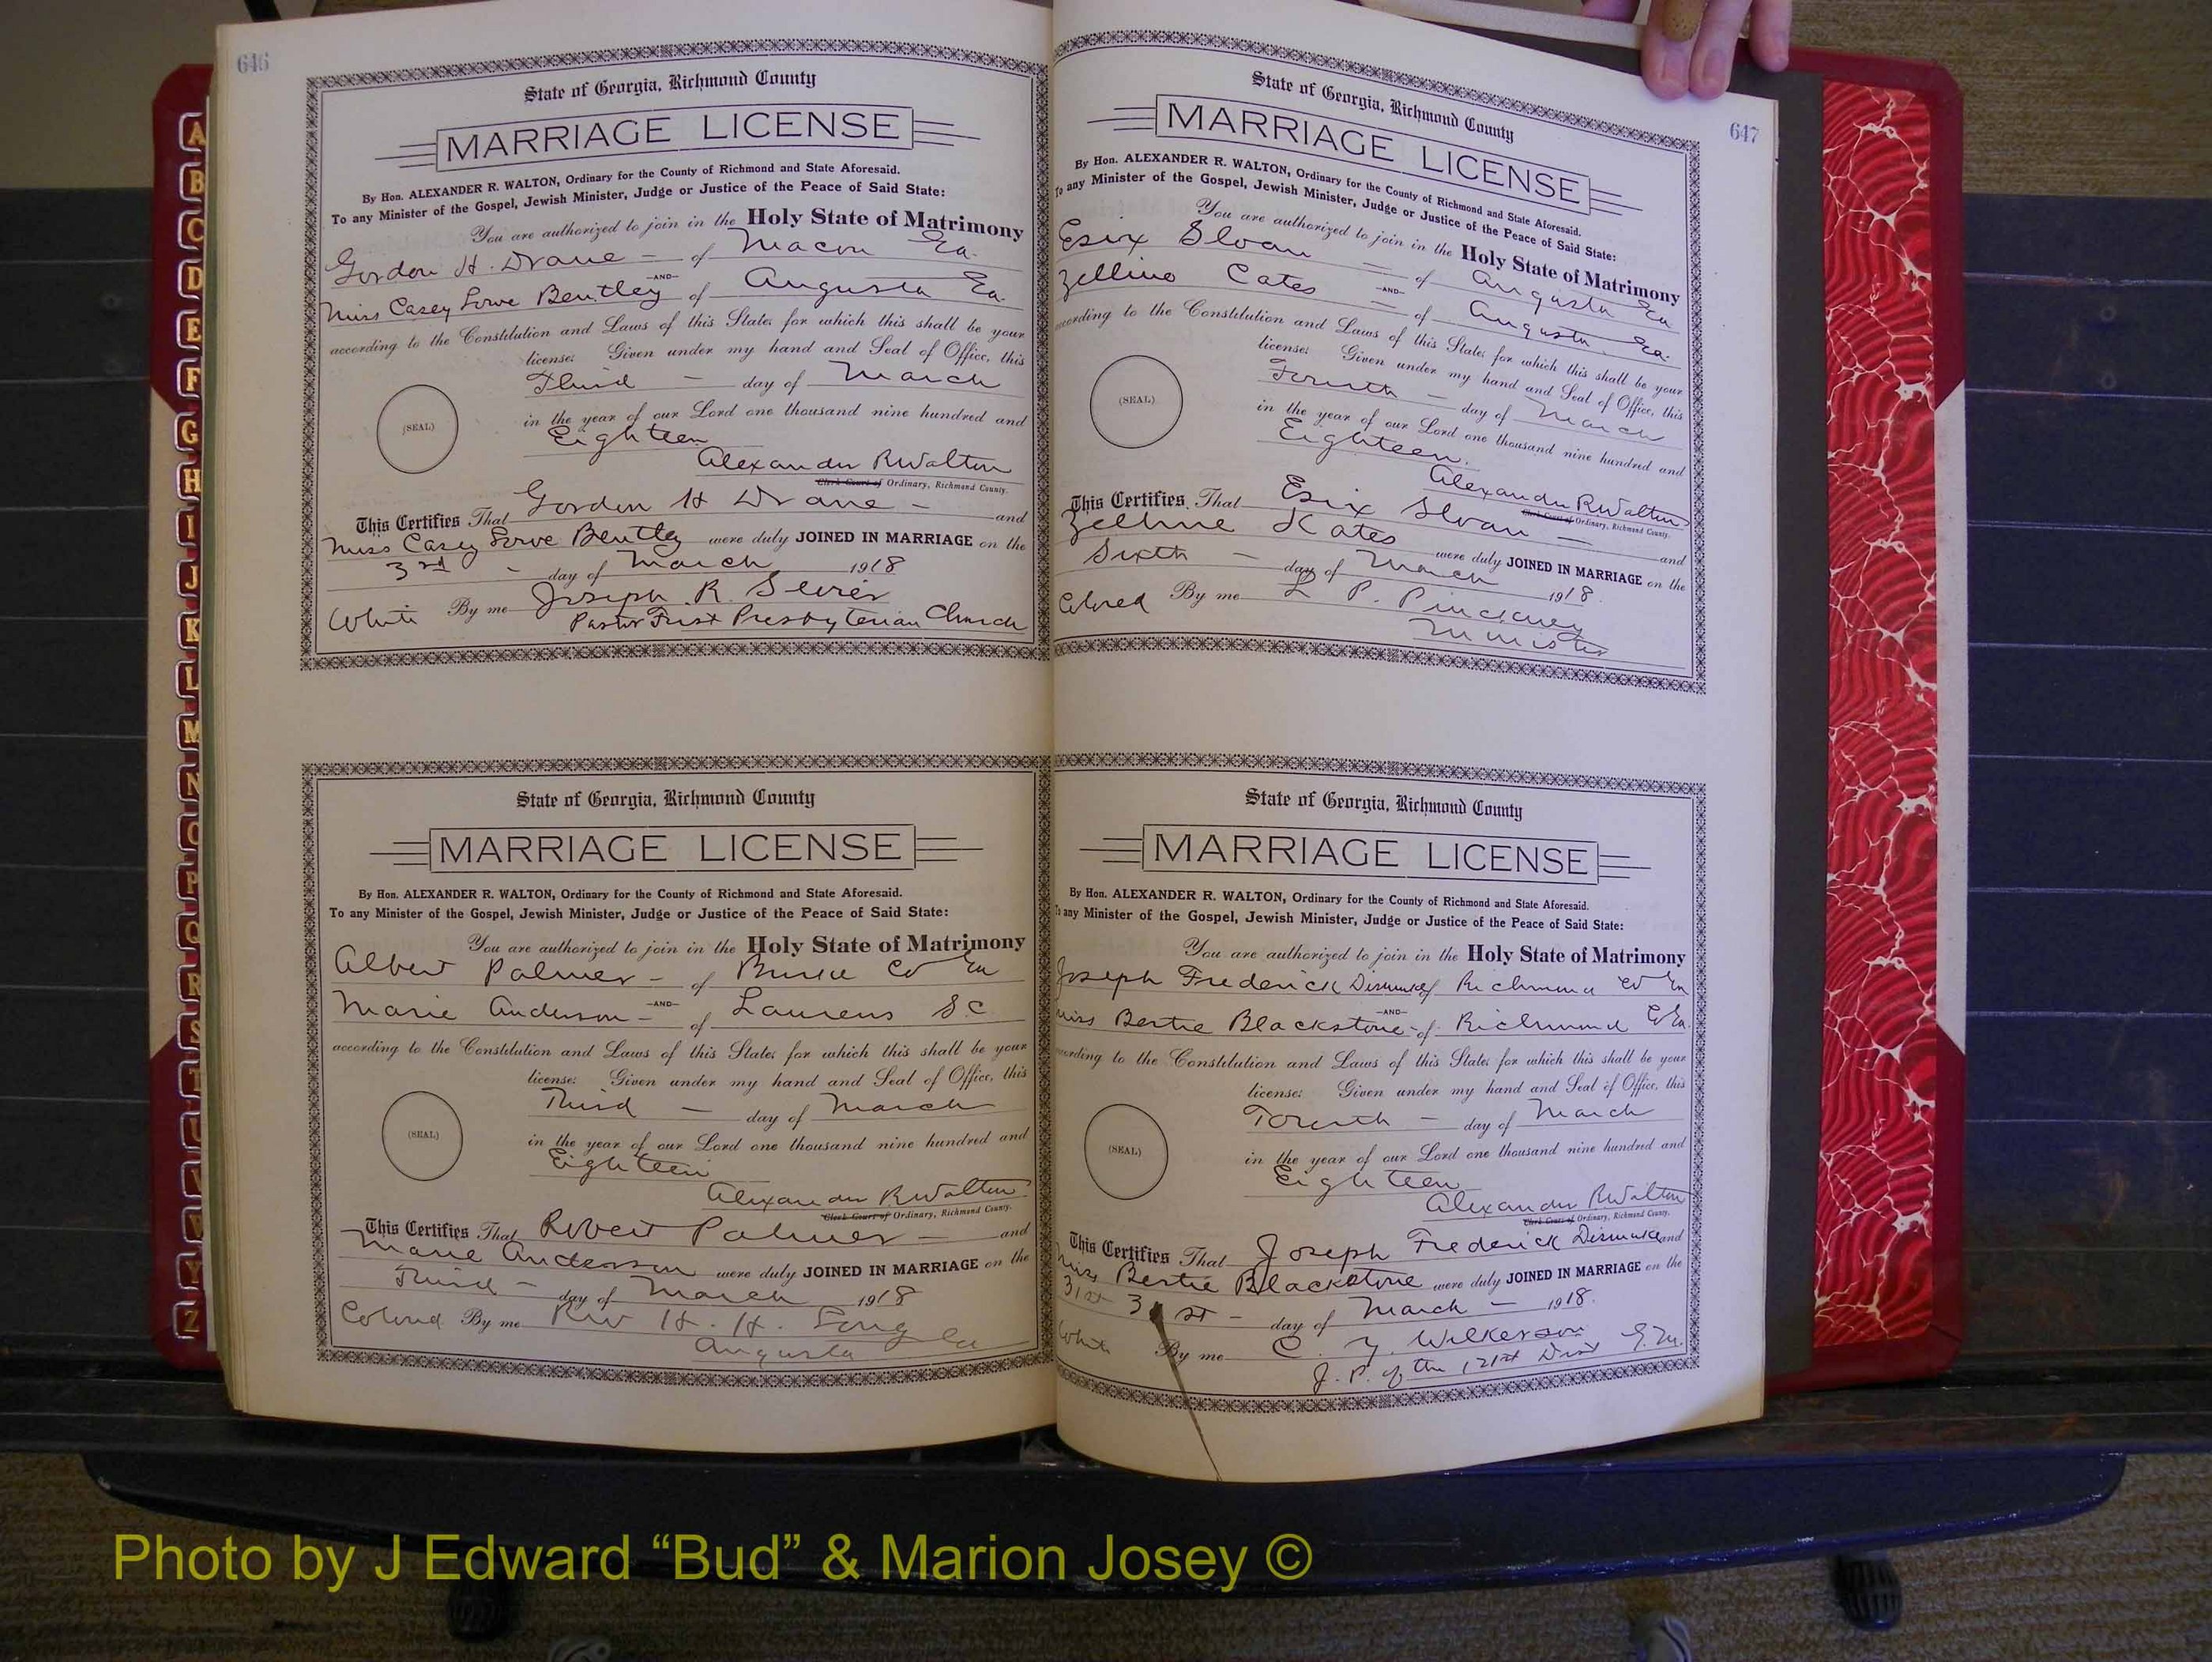 646
State of Georgia, Richmond County
MARRIAGE LICENSE
By Hon. ALEXANDER R. WALTON, Ordinary for the County of Richmond and State Aforesaid.
To any Minister of the Gospel, Jewish Minister, Judge or Justice of the Peace of Said State:
You are authorized to join in the Holy State of Matrimony
Gordon H. Drane - of Macon Ga.
-AND-
Miss Casey Lowe Bentley of Augusta Ga.
according to the Constitution and Laws of this State, for which this shall be your
license: Given under my hand and Seal of Office, this
Third - day of March
(SEAL)
in the year of our Lord one thousand nine hundred and
Eighteen
Alexander R Walton
Clerk Court of Ordinary, Richmond County.
This Certifies That Gordon H Drane - and
Miss Casey Lowe Bentley were duly JOINED IN MARRIAGE on the
3rd - day of March 1918
White By me Joseph R. Sevier
Pastor First Presbyterian Church
State of Georgia, Richmond County
MARRIAGE LICENSE
By Hon. ALEXANDER R. WALTON, Ordinary for the County of Richmond and State Aforesaid.
To any Minister of the Gospel, Jewish Minister, Judge or Justice of the Peace of Said State:
You are authorized to join in the Holy State of Matrimony
Albert Palmer - of Burke Co Ga
-AND-
Marie Anderson - of Laurens S.C.
according to the Constitution and Laws of this State, for which this shall be your
license: Given under my hand and Seal of Office, this
Third - day of March
(SEAL)
in the year of our Lord one thousand nine hundred and
Eighteen
Alexander R Walton
Clerk Court of Ordinary, Richmond County.
This Certifies That Robert Palmer - and
Marie Anderson were duly JOINED IN MARRIAGE on the
Third - day of March 1918
Colored By me Rev H. H. Long
Augusta Ga
647
State of Georgia, Richmond County
MARRIAGE LICENSE
By Hon. ALEXANDER R. WALTON, Ordinary for the County of Richmond and State Aforesaid.
To any Minister of the Gospel, Jewish Minister, Judge or Justice of the Peace of Said State:
You are authorized to join in the Holy State of Matrimony
Esix Sloan - of Augusta Ga
-AND-
Zelline Cates - of Augusta Ga.
according to the Constitution and Laws of this State, for which this shall be your
license: Given under my hand and Seal of Office, this
Fourth - day of March
(SEAL)
in the year of our Lord one thousand nine hundred and
Eighteen.
Alexander R Walton
Clerk Court of Ordinary, Richmond County.
This Certifies That Esix Sloan - and
Zelline Kates were duly JOINED IN MARRIAGE on the
Sixth - day of March 1918.
Colored By me L P. Pinckney
Minister
State of Georgia, Richmond County
MARRIAGE LICENSE
By Hon. ALEXANDER R. WALTON, Ordinary for the County of Richmond and State Aforesaid.
To any Minister of the Gospel, Jewish Minister, Judge or Justice of the Peace of Said State:
You are authorized to join in the Holy State of Matrimony
Joseph Frederick Dismuke of Richmond Co Ga
-AND-
Miss Bertie Blackstone - of Richmond Co Ga.
according to the Constitution and Laws of this State, for which this shall be your
license: Given under my hand and Seal of Office, this
Fourth - day of March
(SEAL)
in the year of our Lord one thousand nine hundred and
Eighteen
Alexander R Walton
Clerk Court of Ordinary, Richmond County.
This Certifies That Joseph Frederick Dismuke and
Miss Bertie Blackstone were duly JOINED IN MARRIAGE on the
31st 31st - day of March - 1918.
White By me C. Y. Wilkerson
J. P. of the 121st Dist G.M.
A
B
C
D
E
F
G
H
I
J
K
L
M
N
O
P
Q
R
S
T
U
V
W
Y
Z
Photo by J Edward “Bud” & Marion Josey ©